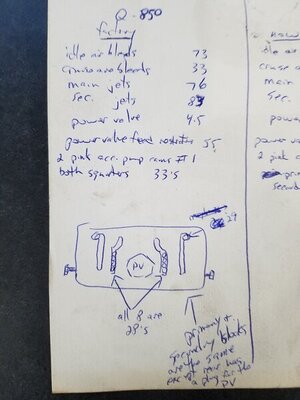 Q-850
factory
idle air bleeds 73
air bleeds 33
main jets 76
sec. jets 83
power valve 4.5
power valve feed 55
2 pink acc. pump cams #1
both squirters 33's
29
PV
all 8 are
28's
primary +
secondary blocks
are the same
except rear has
a plug for the
PV
now
idle air
cruise a
main
sec.
power
power va
2 pink a
pri
second